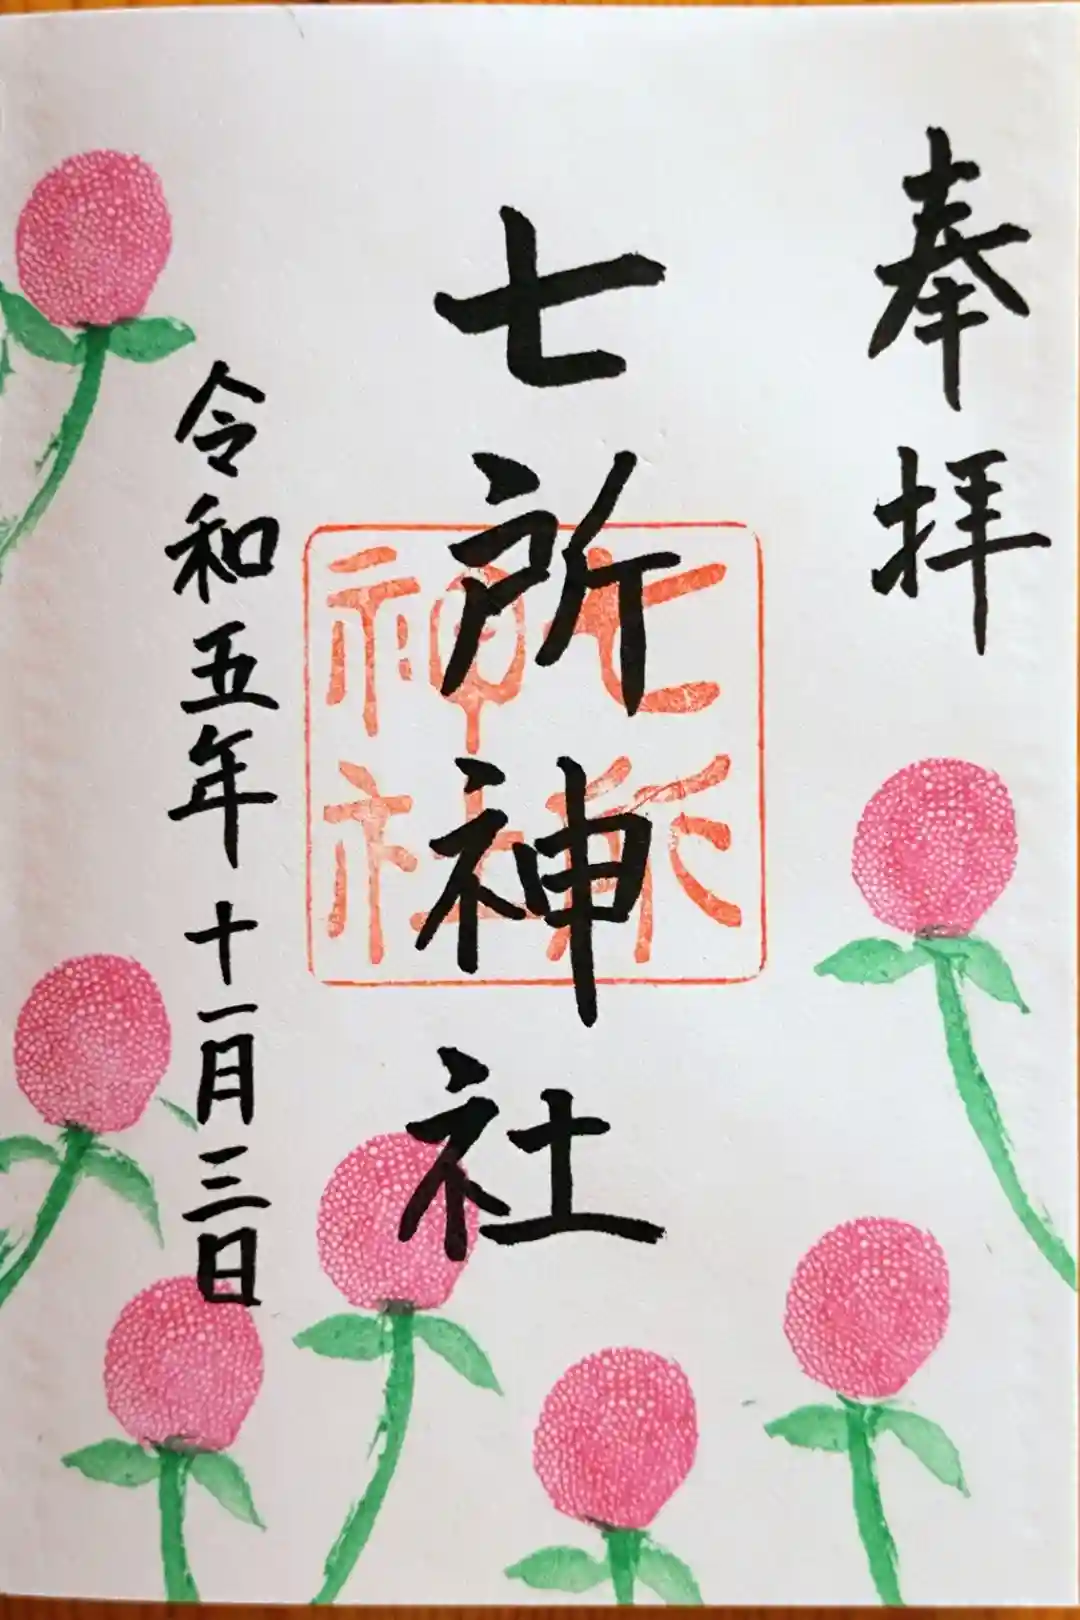 奉拝
七所神社
七所
神社
令和五年十一月三日